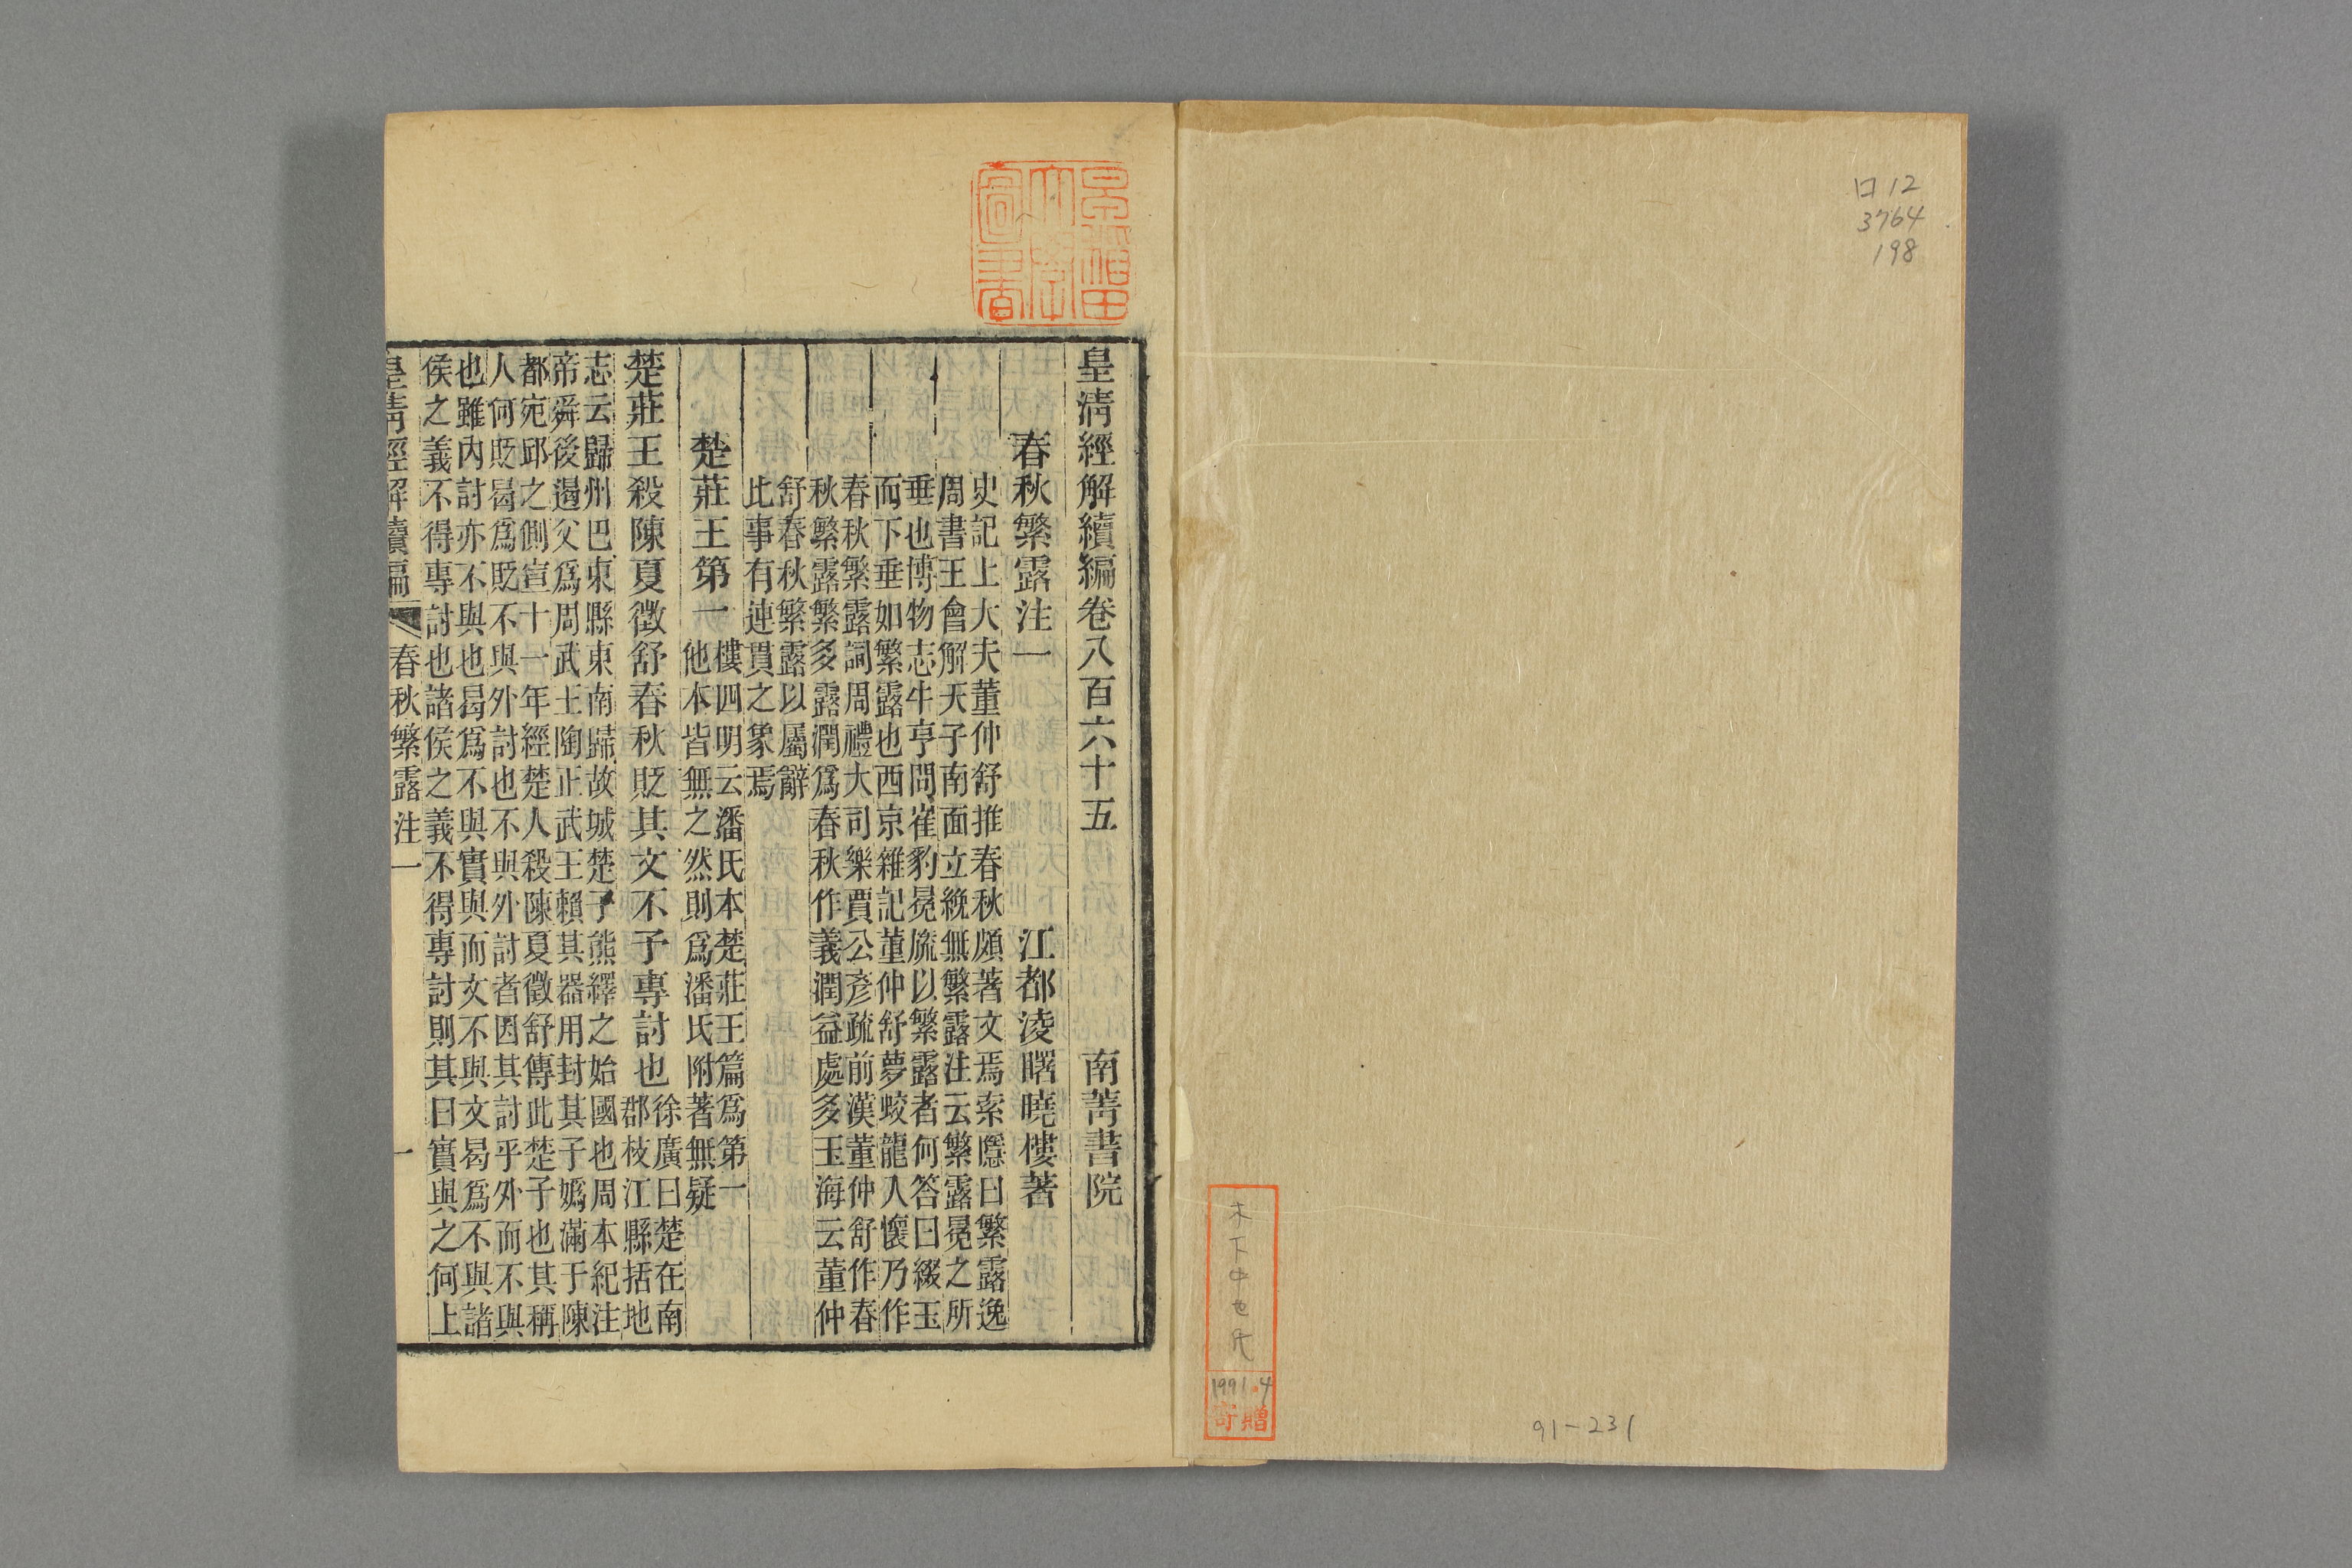 口12
3764
198
木下中也氏
1991.4
寄贈
91-231
早稲田大學圖書
皇清經解續編卷八百六十五
南菁書院
春秋繁露注一
江都淩曙曉樓著
史記上大夫董仲舒推春秋頗著文焉索隱曰繁露逸
周書王會解天子南面立絻無繁露注云繁露冕之所
垂也博物志牛亨問崔豹冕旒以繁露者何答曰綴玉
而下垂如繁露也西京雜記董仲舒夢蛟龍入懷乃作
春秋繁露詞周禮大司樂賈公彥疏前漢董仲舒作春
秋繁露繁多露潤爲春秋作義潤益處多玉海云董仲
舒春秋繁露以屬辭
比事有連貫之象焉
楚莊王第一
樓四明云潘氏本楚莊王篇爲第一
他本皆無之然則爲潘氏附著無疑
楚莊王殺陳夏徵舒春秋貶其文不予專討也
徐廣曰楚在南
郡枝江縣括地
志云歸州巴東縣東南歸故城楚子熊繹之始國也周本紀注
帝舜後遏父爲周武王陶正武王賴其器用封其子嬀滿于陳
都宛邱之側宣十一年經楚人殺陳夏徵舒傳此楚子也其稱
人何貶曷爲貶不與外討也不與外討者因其討乎外而不與
也雖內討亦不與也曷爲不與實與而文不與文曷爲不與諸
侯之義不得專討也諸侯之義不得專討則其曰實與之何上
皇清經解續編
春秋繁露注一
一